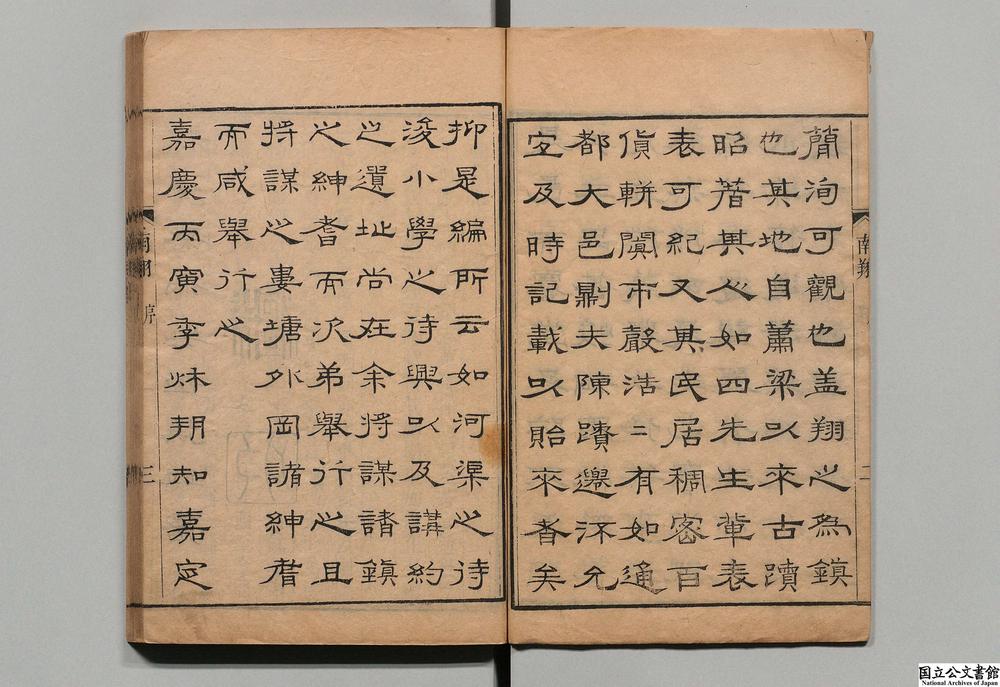 簡洵可觀也盖翔之為鎮
也其地自蕭梁以來古蹟
昭著其人如四先生輩表
表可紀又其民居稠密百
貨騈闐市聲浩二有如通
都大邑劓夫陳蹟允
宐及時記載以貽來者矣
南翔 二
抑是編所云如河渠之待
浚小學之待興以及講約
之遺址尚在余將謀諸鎮
之紳耆而次弟舉行之且
將謀之婁塘外岡諸紳耆
而咸舉行之
嘉慶丙寅季秌朔知嘉定
南翔 序 三
国立公文書館
National Archives of Japan